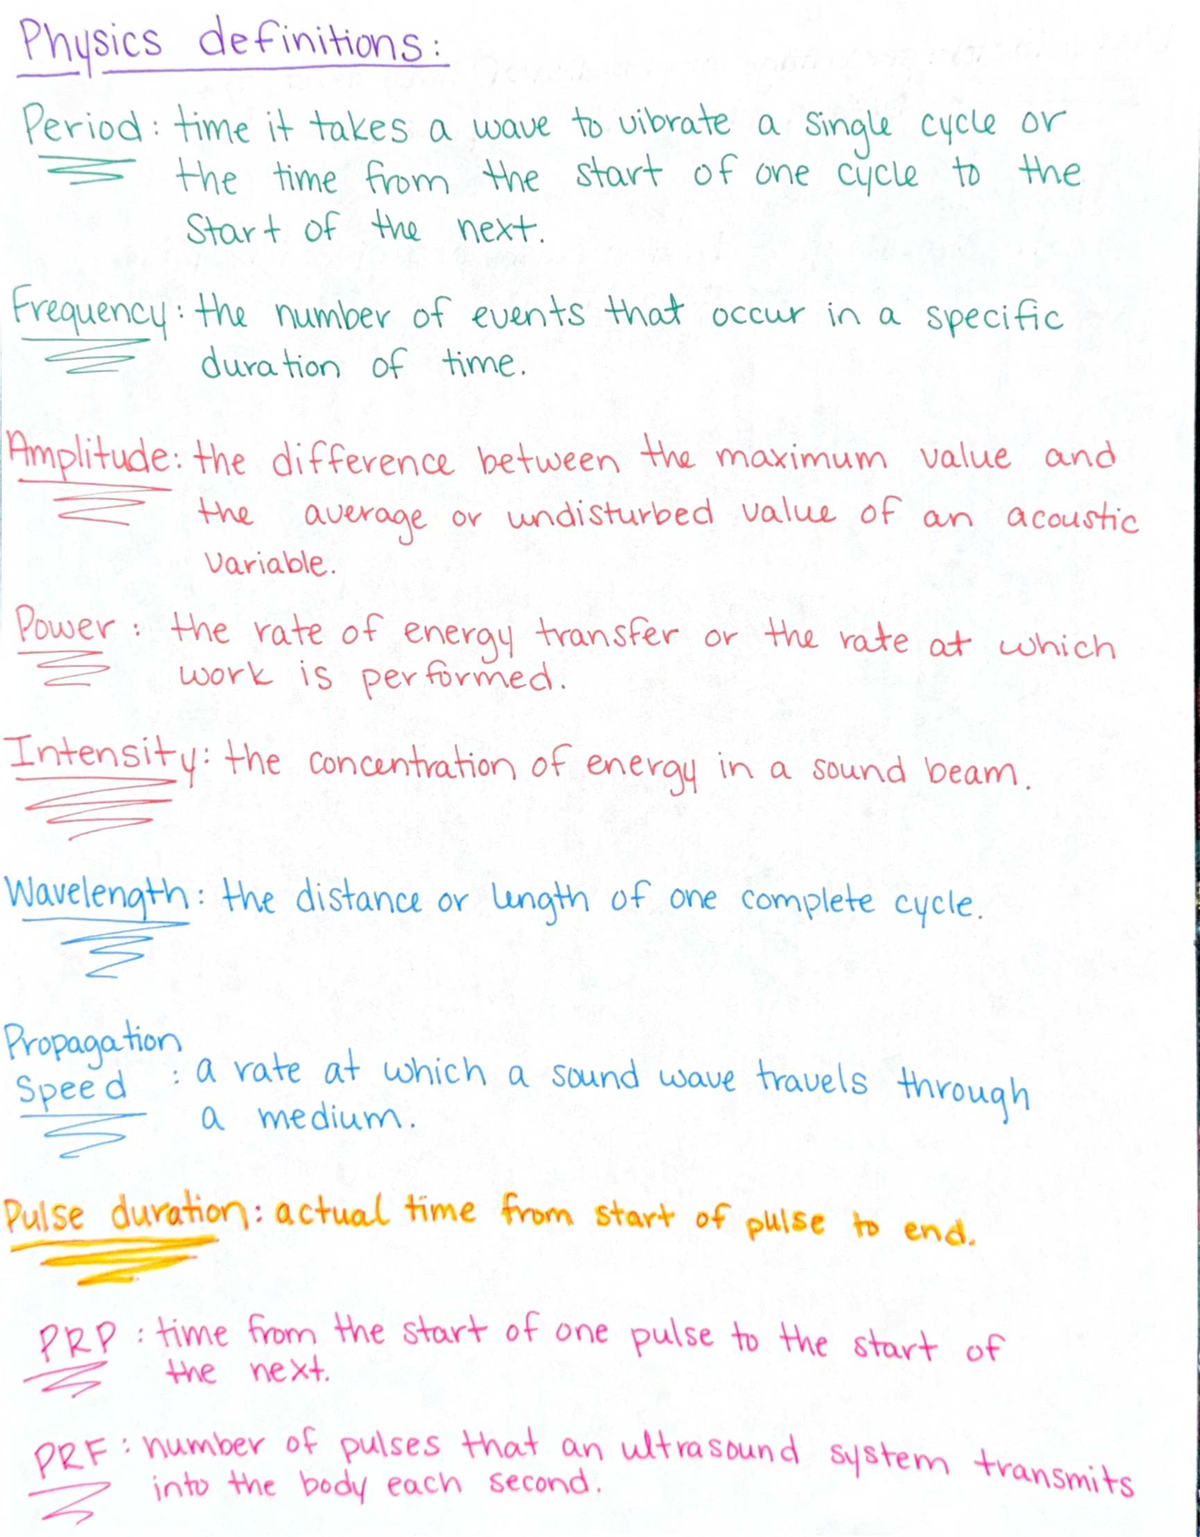 Physics definitions:
Period: time it takes a wave to vibrate a single cycle or
the time from the start of one cycle to the
Start of the next.
Frequency: the number of events that occur in a specific
duration of time.
Amplitude: the difference between the maximum value and
the average or undisturbed value of an acoustic
variable.
Power: the rate of energy transfer or the rate at which
work is performed.
Intensity: the concentration of energy in a sound beam.
Wavelength: the distance or length of one complete cycle.
Propagation
Speed : a rate at which a sound wave travels through
a medium.
Pulse duration: actual time from start of pulse to end.
PRP: time from the start of one pulse to the start of
the next.
PRF: number of pulses that an ultrasound system transmits
into the body each second.